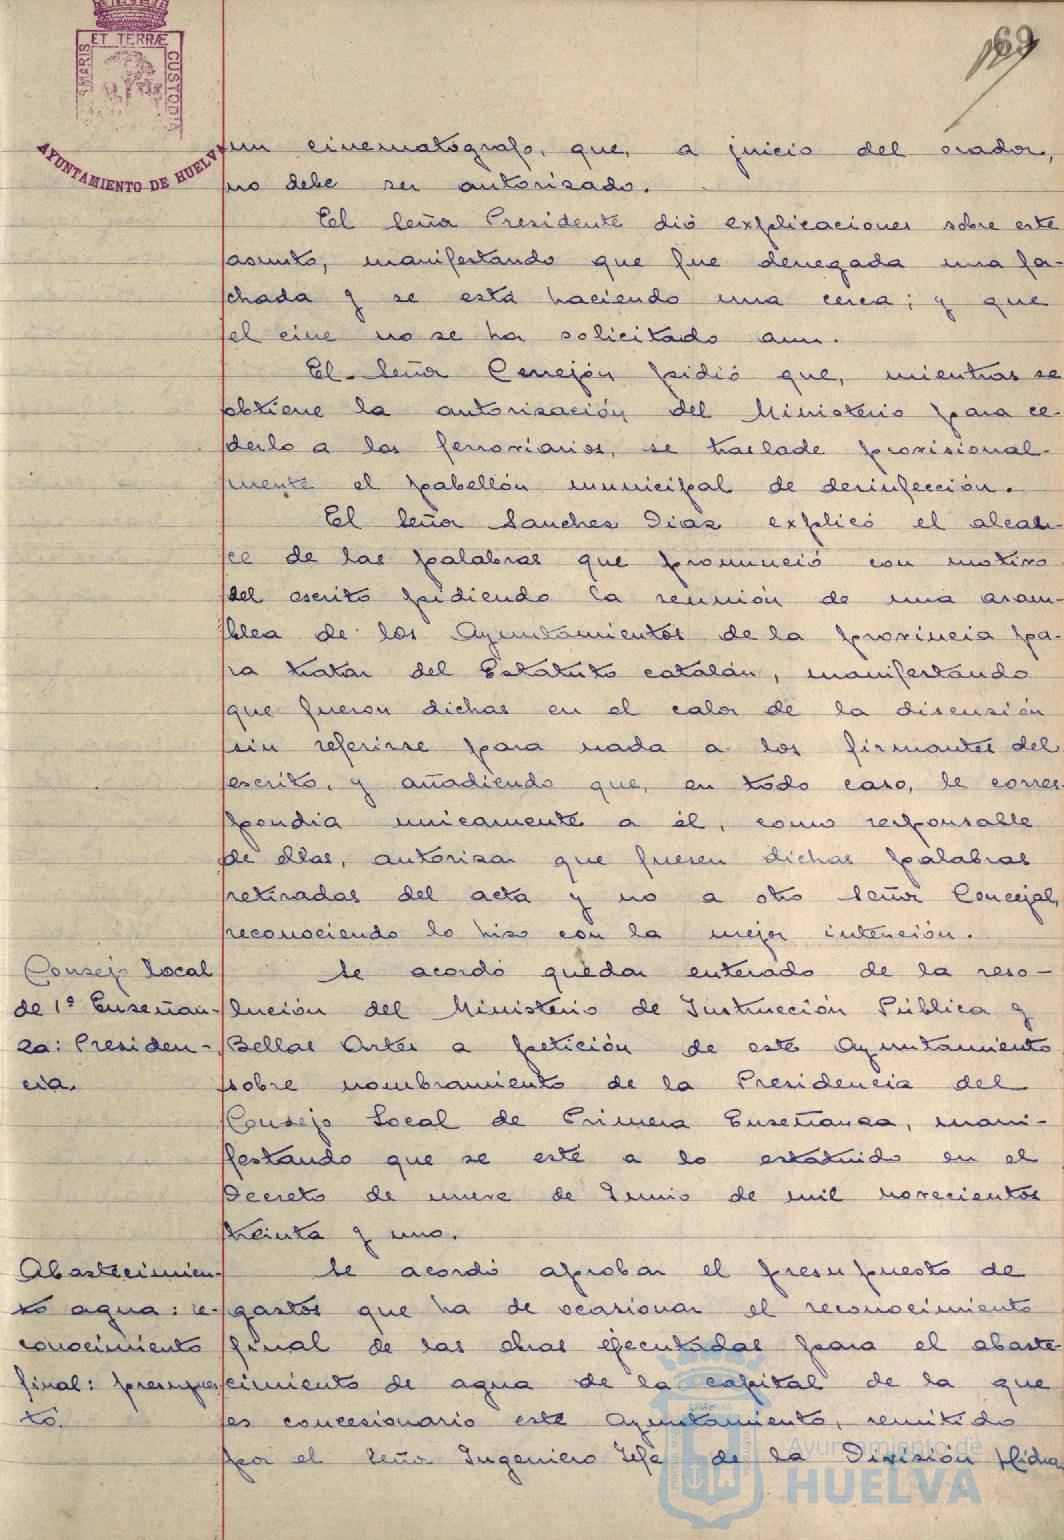 69
ET TERRÆ
S MARIS
CUSTODIA
AYUNTAMIENTO DE HUELVA
un cinematógrafo, que, a juicio del orador,
no debe ser autorizado.
El Señor Presidente dió explicaciones sobre este
asunto, manifestando que fue denegada una fa-
chada y se está haciendo una cerca; y que
el cine no se ha solicitado aun.
El Señor Cerrejón pidió que, mientras se
obtiene la autorización del Ministerio para ce-
derlo a los ferroviarios, se traslade provisional-
mente el pabellón municipal de desinfección.
El Señor Sanchez Diaz explicó el alcan-
ce de las palabras que pronunció con motivo
del escrito pidiendo la reunión de una asam-
blea de los Ayuntamientos de la provincia pa-
ra tratar del Estatuto catalán, manifestando
que fueron dichas en el calor de la discusión
sin referirse para nada a los firmantes del
escrito, y añadiendo que, en todo caso, le corres-
pondia unicamente a él, como responsable
de ellas, autorizar que fuesen dichas palabras
retiradas del acta y no a otro Señor Concejal,
reconociendo lo hizo con la mejor intención.
Consejo Local
de 1ª Enseñan-
za: Presiden-
cia.
Se acordó quedar enterado de la reso-
lución del Ministerio de Instrucción Pública y
Bellas Artes a petición de este Ayuntamiento
sobre nombramiento de la Presidencia del
Consejo Local de Primera Enseñanza, mani-
festando que se esté a lo estatuido en el
Decreto de nueve de Junio de mil novecientos
treinta y uno.
Abastecimien-
to agua: re-
conocimiento
final: presupues
to.
Se acordó aprobar el presupuesto de
gastos que ha de ocasionar el reconocimiento
final de las obras ejecutadas para el abaste-
cimiento de agua de la capital de la que
es concesionario este Ayuntamiento, remitido
por el Señor Ingeniero Jefe de la División Hidrau
Ayuntamiento de
HUELVA